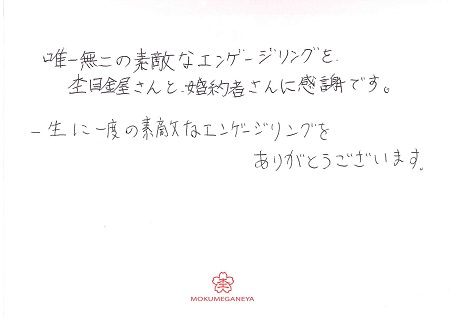 唯一無二の素敵なエンゲージリングを、
杢目金屋さんと、婚約者さんに感謝です。
一生に一度の素敵なエンゲージリングを
ありがとうございます。
MOKUMEGANEYA